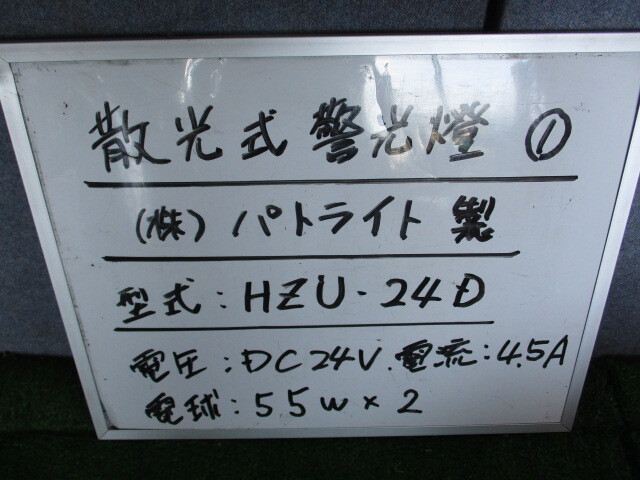 散光式 警光燈 ①
(株) パトライト 製
型式:HZU-24D
電圧:DC24V.電流:4.5A
電球:55W×2